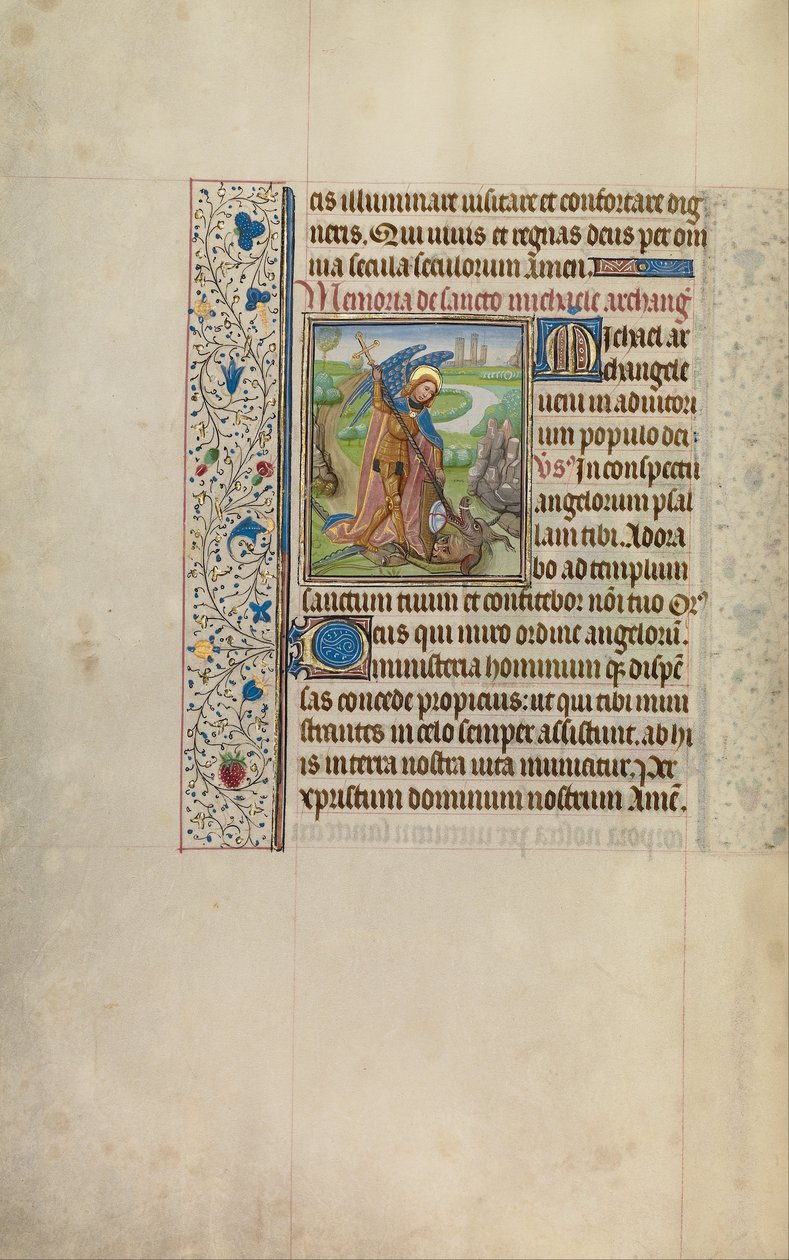 cis illuminare uisitare et confortare dig
neris. Qui uiuis et regnas deus per om
nia secula seculorum Amen.
Memoria de sancto michaele archang̃
Michael ar
changele
ueni in adiutori
um populo dei.
v̄s Inconspectu
angelorum psal
lam tibi. Adora
bo ad templum
sanctum tuum et confitebor nõi tuo Or̃
Deus qui miro ordine angelorũ.
ministeria hominum qꝫ dispẽ
sas concede propicius: ut qui tibi mini
strantes in celo semper assistunt. ab hi
is in terra nostra uita muniatur. Per
xpristum dominum nostrum Amẽ.